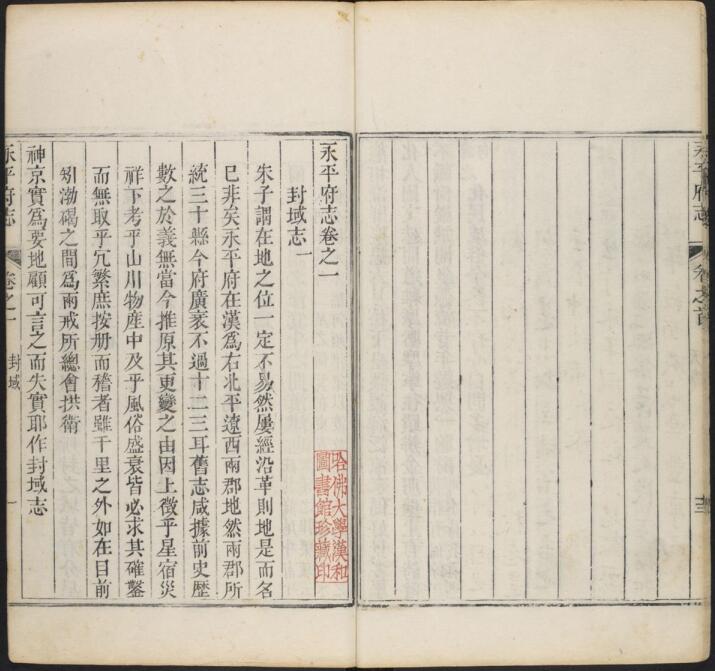 永平府志 卷之首
永平府志卷之一
封域志一
哈佛大學漢和
圖書館珍藏印
朱子謂在地之位一定不易然屢經沿革則地是而名
巳非矣永平府在漢爲右北平遼西兩郡地然兩郡所
統三十縣今府廣袤不過十二三耳舊志咸據前史歷
數之於義無當今推原其更變之由因上徵乎星宿災
祥下考乎山川物産中及乎風俗盛衰皆必求其確鑿
而無取乎冗繁庶按册而稽者雖千里之外如在目前
矧渤碣之間爲兩戒所總會拱衛
神京實爲要地顧可言之而失實耶作封域志
永平府志 卷之一 封域 一